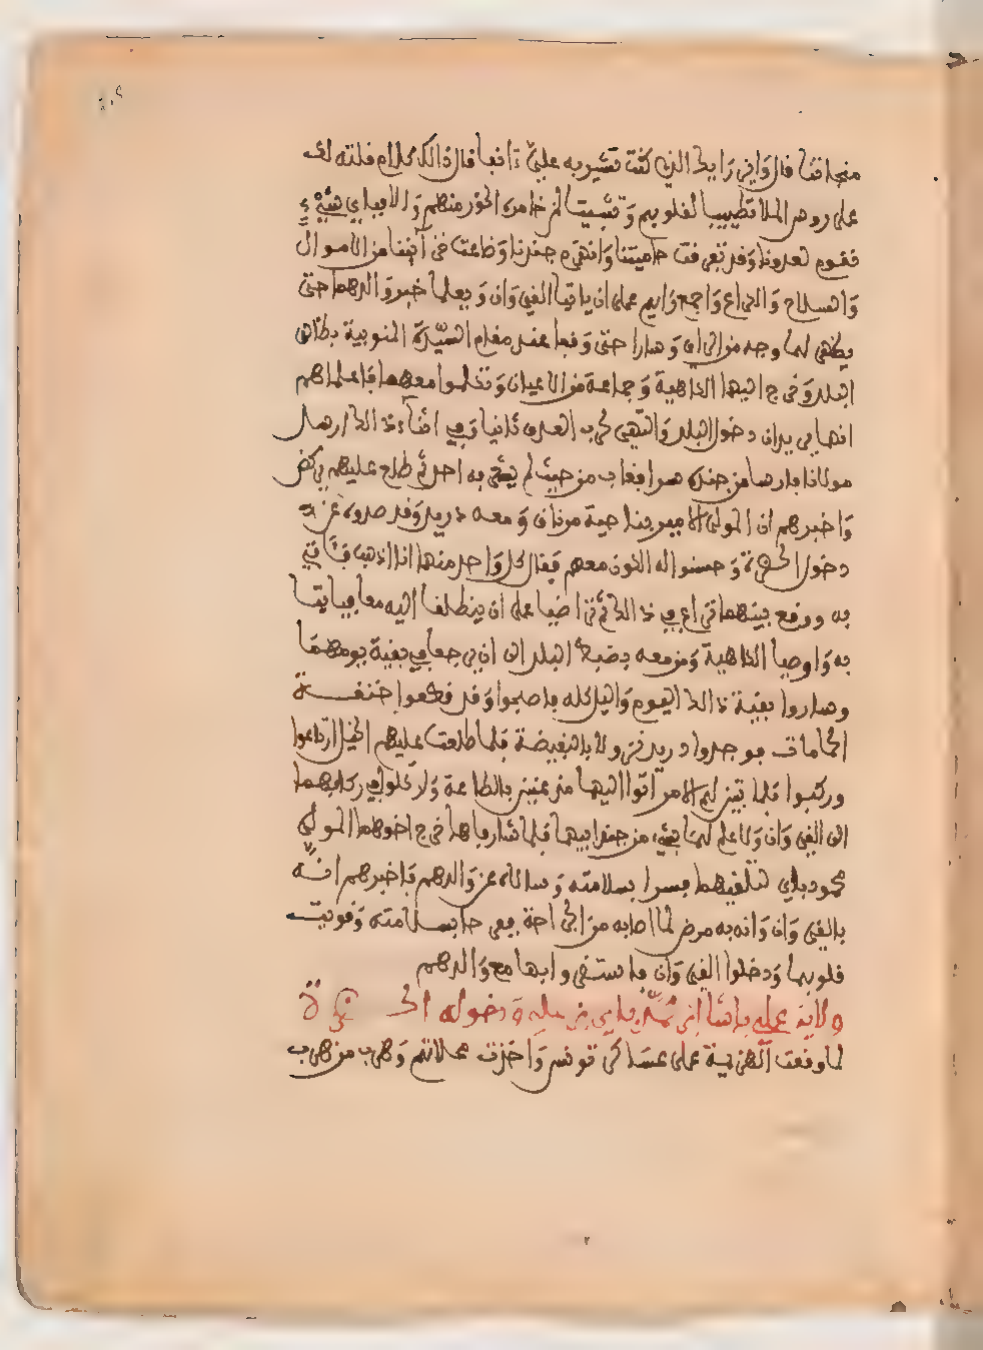 قال وَايْن رَايك الذي كنت تشير به عليّ ءانفا قال ذالك كلام قلته لك
على رءوس الملا تطييبا لقلوبهم وَتثبيتا لمن خامره الخوْر منهم وَالا فباي شيْء
نقوم لعدونا وَقد تفرقت حاميتنا وَانهزم جندنا وَضاعت خزائننا من الاموال
وَالسلاح وَالكراع وَاجمع رَايهم على ان ياتيا القيروَان وَيعلما خبر وَالدهما حتى
يظهر لهما وجه من الراي وَسارا حتى وَقفا عند مقام السيّدة المنوبية بظاهر
البلد وَخرج اليهما الداهية وَجماعة من الاعيان وَتكلموا معهما فاعلماهم
انهما يريدان دخول البلد وَالتهيئ لحرب العدو ثانيا وَفي اثناء ذالك ارسل
مولانا فارسا من جنده سرا فغاب من حيث لم يشعر به احد ثم طلع عليهم يركض
وَاخبرهم ان المولى الامير بناحية مرناق وَمعه دريد وَقد صدوه عن
دخول الحضرة وَحسنوا له الكون معهم فقال كل وَاحد منهما انا اذهب فئاتي
به ووقع بينهما نزاع في ذالك ثم تراضيا على ان ينطلقا اليه معا فياتيا
به وَاوصيا الداهية وَمن معه بضبط البلد الى ان يرجعا في بقية يومهما
وساروا بقية ذالك اليوم وَالليل كله فاصبحوا وَقد قطعوا خنقة
الحمامات فوجدوا دريد نزولا بالنفيضة فلما طلعت عليهم الخيل ارتاعوا
وركبوا فلما تبين لهم الامر اتوا اليهما مذعنين بالطاعة وَلا علم لهما بشيء من جند ابيهما فلما شارفاها خرج اخوهما المولى
محمود باي لتلقيهما فسرا بسلامته وَسالاه عن وَالدهم فاخبرهم انه
بالقيروَان وَانه به مرض لما اصابه من الجراحة ففرحا بسلامته وَقويت
قلوبهما وَدخلوا القيروَان فاستقروا بها مع وَالدهم
ولاية علي باشا ابن محمّد باي بن علي وَدخوله الحضرة
لما وقعت الهزيمة على عساكر تونس وَاخذت محلاتهم وَهرب من هرب